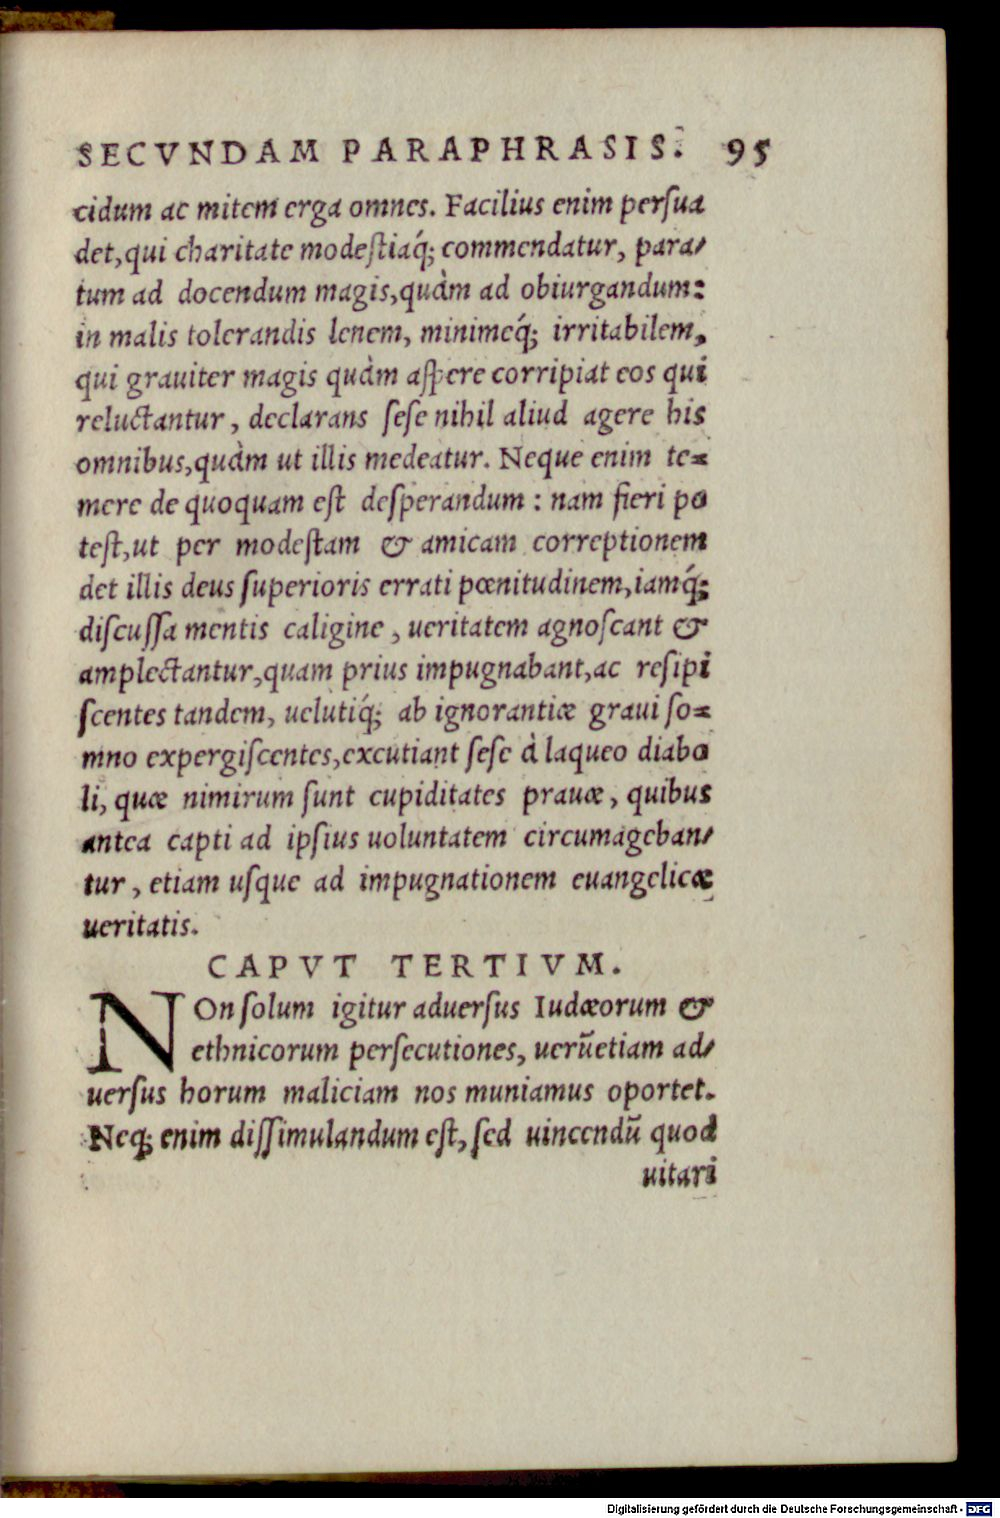 SECVNDAM PARAPHRASIS. 95
cidum ac mitem erga omnes. Facilius enim perſua
det, qui charitate modeſtiaq́; commendatur, para-
tum ad docendum magis, quàm ad obiurgandum:
in malis tolerandis lenem, minimeq́; irritabilem,
qui grauiter magis quàm aſpere corripiat eos qui
reluctantur, declarans ſeſe nihil aliud agere his
omnibus, quàm ut illis medeatur. Neque enim te=
mere de quoquam eſt deſperandum: nam fieri po
teſt, ut per modeſtam & amicam correptionem
det illis deus ſuperioris errati pœnitudinem, iamq́;
diſcuſſa mentis caligine, ueritatem agnoſcant &
amplectantur, quam prius impugnabant, ac reſipi
ſcentes tandem, uelutiq́; ab ignorantiæ graui ſo=
mno expergiſcentes, excutiant ſeſe à laqueo diabo
li, quæ nimirum ſunt cupiditates prauæ, quibus
antea capti ad ipſius uoluntatem circumageban-
tur, etiam uſque ad impugnationem euangelicæ
ueritatis.
CAPVT TERTIVM.
NOn ſolum igitur aduerſus Iudæorum &
ethnicorum perſecutiones, uerũetiam ad-
uerſus horum maliciam nos muniamus oportet.
Neq; enim diſſimulandum eſt, ſed uincendũ quod
uitari
Digitalisierung gefördert durch die Deutsche Forschungsgemeinschaft - DFG